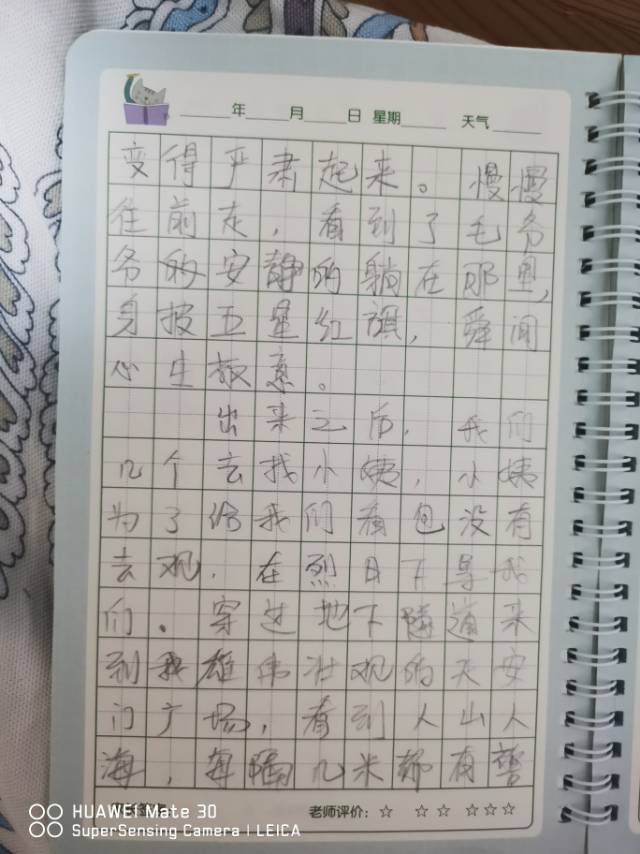 年 月 日 星期 天气
变得严肃起来。慢慢
往前走，看到了毛爷
爷的安静的躺在那里，
身披五星红旗，舜间
心生敬意。
出来之后，我们
几个去找小姨，小姨
为了给我们看包没有
去观，在烈日下等我
们。穿过地下隧道来
到我雄伟壮观的天安
门广场，看到人山人
海，每隔几米都有警
老师评价：☆ ☆☆ ☆☆☆
HUAWEI Mate 30
SuperSensing Camera | LEICA